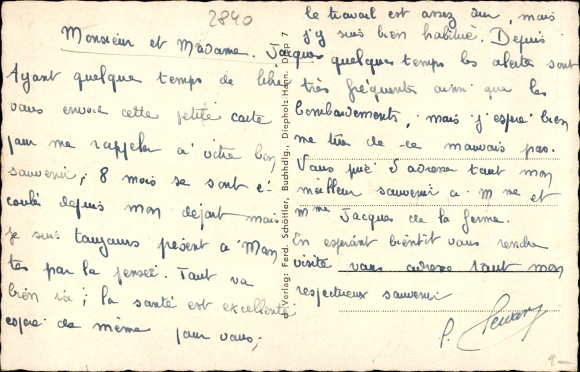 2840
Monsieur et Madame. Jacques
Ayant quelque temps de libre
vous envoie cette petite carte
pour me rappeler a votre bon
souvenir; 8 mois se sont é
coulé depuis mon depart mais
je suis toujours présent a Man
tes par la pensée. Tout va
bien ici; la santé est excellente
espere de même pour vous;
le travail est assez dur, mais
j'y suis bien habitué. Depuis
quelques temps les alertes sont
très fréquentes ainsi que les
bombardements, mais j'espere bien
me tirer de ce mauvais pas.
Vous prie d'adresser tout mon
meilleur souvenir a Mme et
Mme Jacques de la ferme.
En espérant bientôt vous rendre
visite vous adresse tout mon
respectueux souvenir
P.
Verlag: Ferd. Schöttler, Buchhdlg., Diepholz Hann. Diep 7
9-